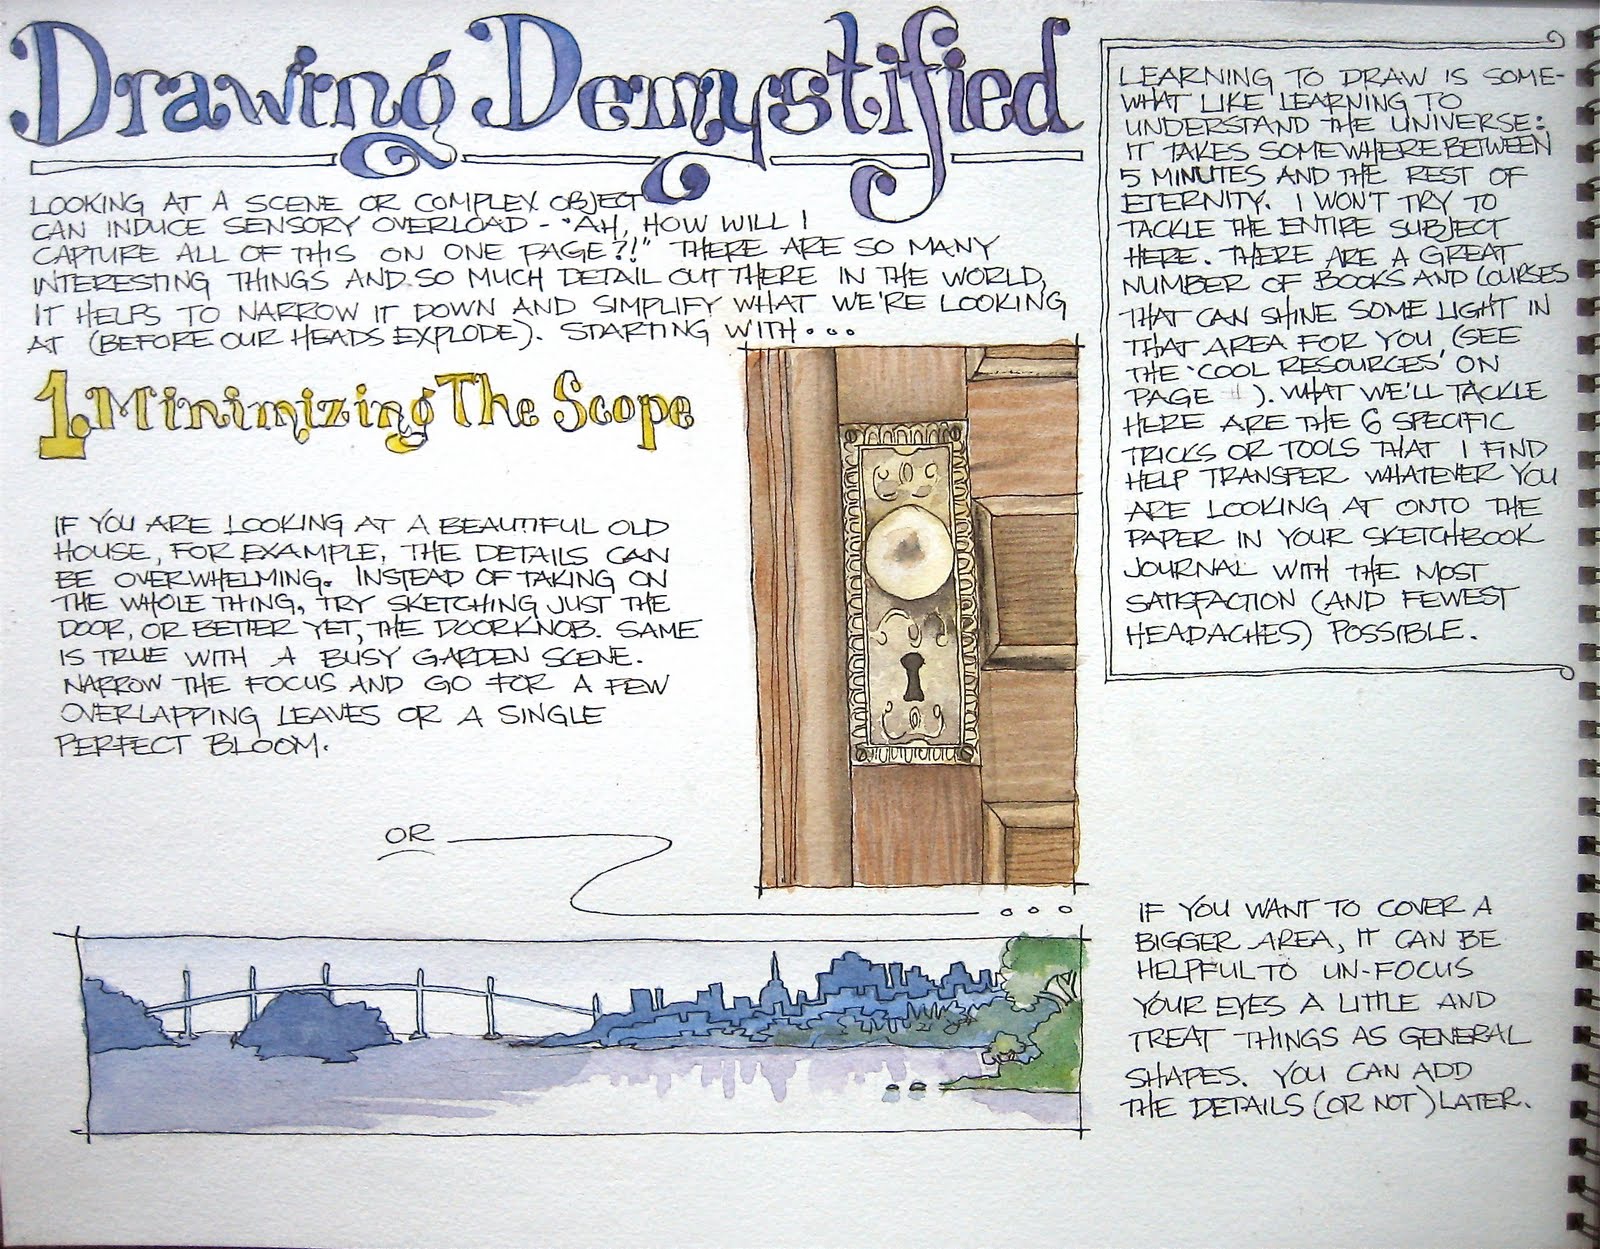 Drawing Demystified
LOOKING AT A SCENE OR COMPLEX OBJECT
CAN INDUCE SENSORY OVERLOAD - "AH, HOW WILL I
CAPTURE ALL OF THIS ON ONE PAGE?!" THERE ARE SO MANY
INTERESTING THINGS AND SO MUCH DETAIL OUT THERE IN THE WORLD,
IT HELPS TO NARROW IT DOWN AND SIMPLIFY WHAT WE'RE LOOKING
AT (BEFORE OUR HEADS EXPLODE). STARTING WITH...
1. Minimizing The Scope
IF YOU ARE LOOKING AT A BEAUTIFUL OLD
HOUSE, FOR EXAMPLE, THE DETAILS CAN
BE OVERWHELMING. INSTEAD OF TAKING ON
THE WHOLE THING, TRY SKETCHING JUST THE
DOOR, OR BETTER YET, THE DOORKNOB. SAME
IS TRUE WITH A BUSY GARDEN SCENE.
NARROW THE FOCUS AND GO FOR A FEW
OVERLAPPING LEAVES OR A SINGLE
PERFECT BLOOM.
OR
...
LEARNING TO DRAW IS SOME-
WHAT LIKE LEARNING TO
UNDERSTAND THE UNIVERSE:
IT TAKES SOMEWHERE BETWEEN
5 MINUTES AND THE REST OF
ETERNITY. I WON'T TRY TO
TACKLE THE ENTIRE SUBJECT
HERE. THERE ARE A GREAT
NUMBER OF BOOKS AND COURSES
THAT CAN SHINE SOME LIGHT IN
THAT AREA FOR YOU (SEE
THE 'COOL RESOURCES' ON
PAGE # ). WHAT WE'LL TACKLE
HERE ARE THE 6 SPECIFIC
TRICKS OR TOOLS THAT I FIND
HELP TRANSFER WHATEVER YOU
ARE LOOKING AT ONTO THE
PAPER IN YOUR SKETCHBOOK
JOURNAL WITH THE MOST
SATISFACTION (AND FEWEST
HEADACHES) POSSIBLE.
IF YOU WANT TO COVER A
BIGGER AREA, IT CAN BE
HELPFUL TO UN-FOCUS
YOUR EYES A LITTLE AND
TREAT THINGS AS GENERAL
SHAPES. YOU CAN ADD
THE DETAILS (OR NOT) LATER.